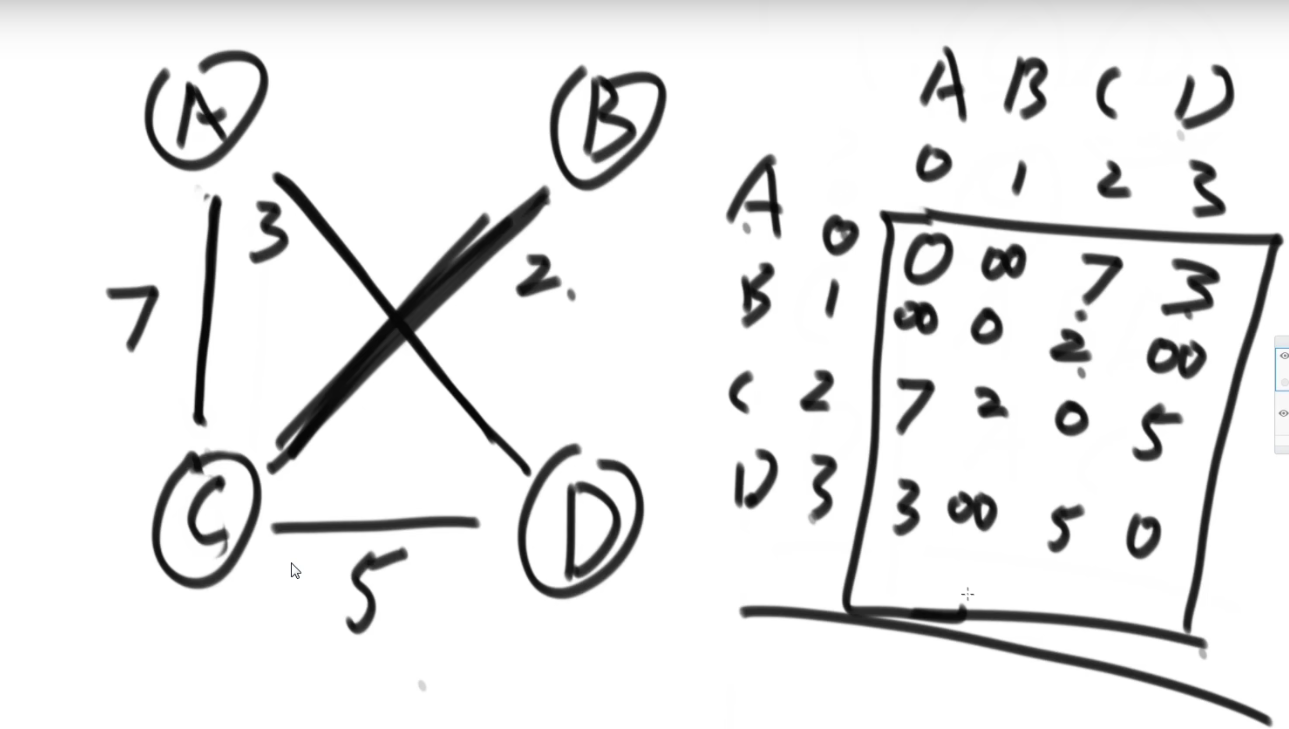 A B
3
7 2.
C D
5
A B C D
0 1 2 3
A 0 0 ∞ 7 3
B 1 ∞ 0 2 ∞
C 2 7 2 0 5
D 3 3 ∞ 5 0